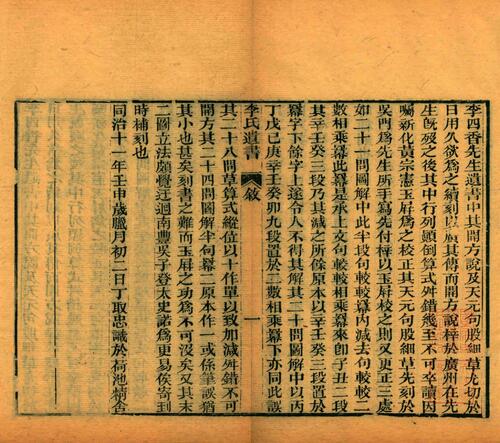 李四香先生遺書中其開方說及天元句股細草尤切於
日用久欲為之續刻以廣其傳而開方說梓於廣州在先
生既歿之後其中行列顚倒算式舛錯幾至不可卒讀因
囑新化黃宗憲玉屛為之校正其天元句股細草先刻於
吳門為先生所手寫先付梓以玉屛校之則又更正三處
如二十一問圖解中此半段句較較冪內減去句較較二
數相乘冪此冪是承上文句較較相乘冪來卽子丑二段
其辛壬癸三段乃其減之所餘原本以辛壬癸三段
冪字下餘字上遂令人不得其解其二十問圖解中以丙
丁戊己庚辛壬癸卯九段置於二數相乘冪下亦同此誤
李氏遺書 敘 一
其二十八問草算式縱位以十作單以致加減舛錯不可
開方其二十四問圖解半句冪二原本作一或係筆誤猶
其小也甚矣刻書之難而玉屛之功為不可沒矣又其末
二圖立法頗覺迂迴南豐吳子登太史諾為更易俟寄到
時補刻也
同治十一年壬申歲臘月初二日丁取忠識於荷池精舍